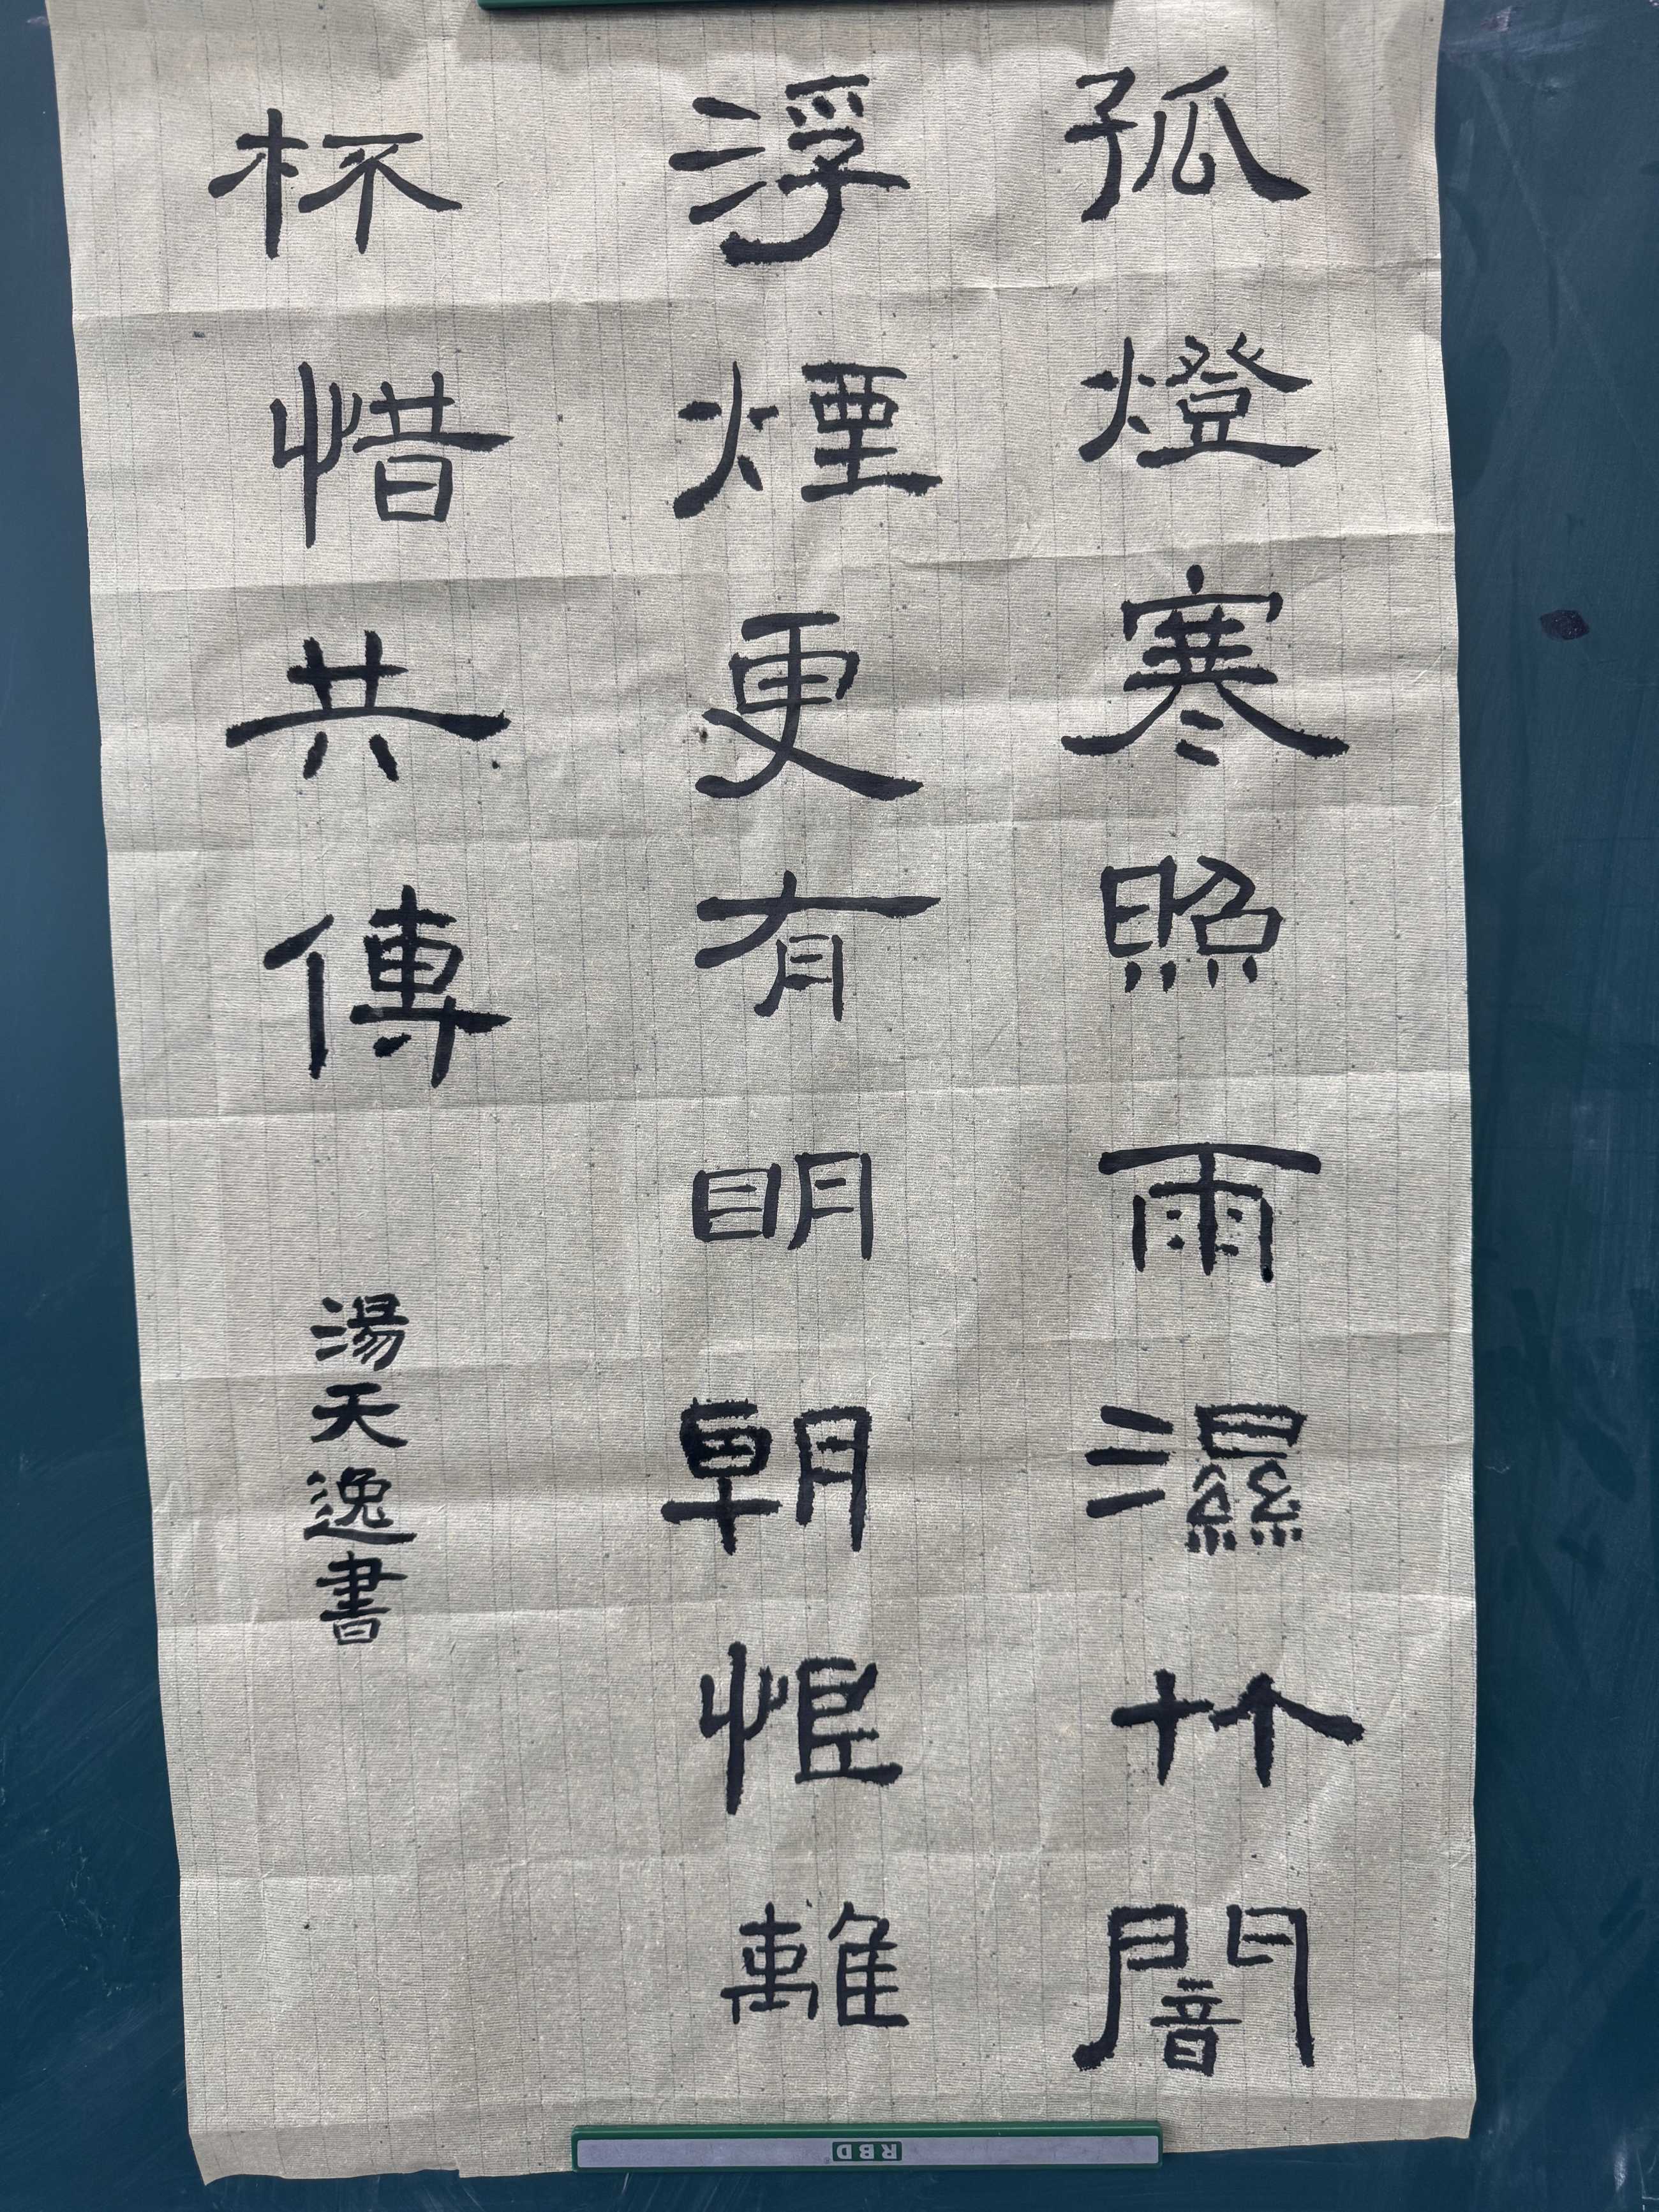 孤燈寒照雨濕竹闇
浮煙更有明朝恨離
杯惜共傳
湯天逸書
RBD